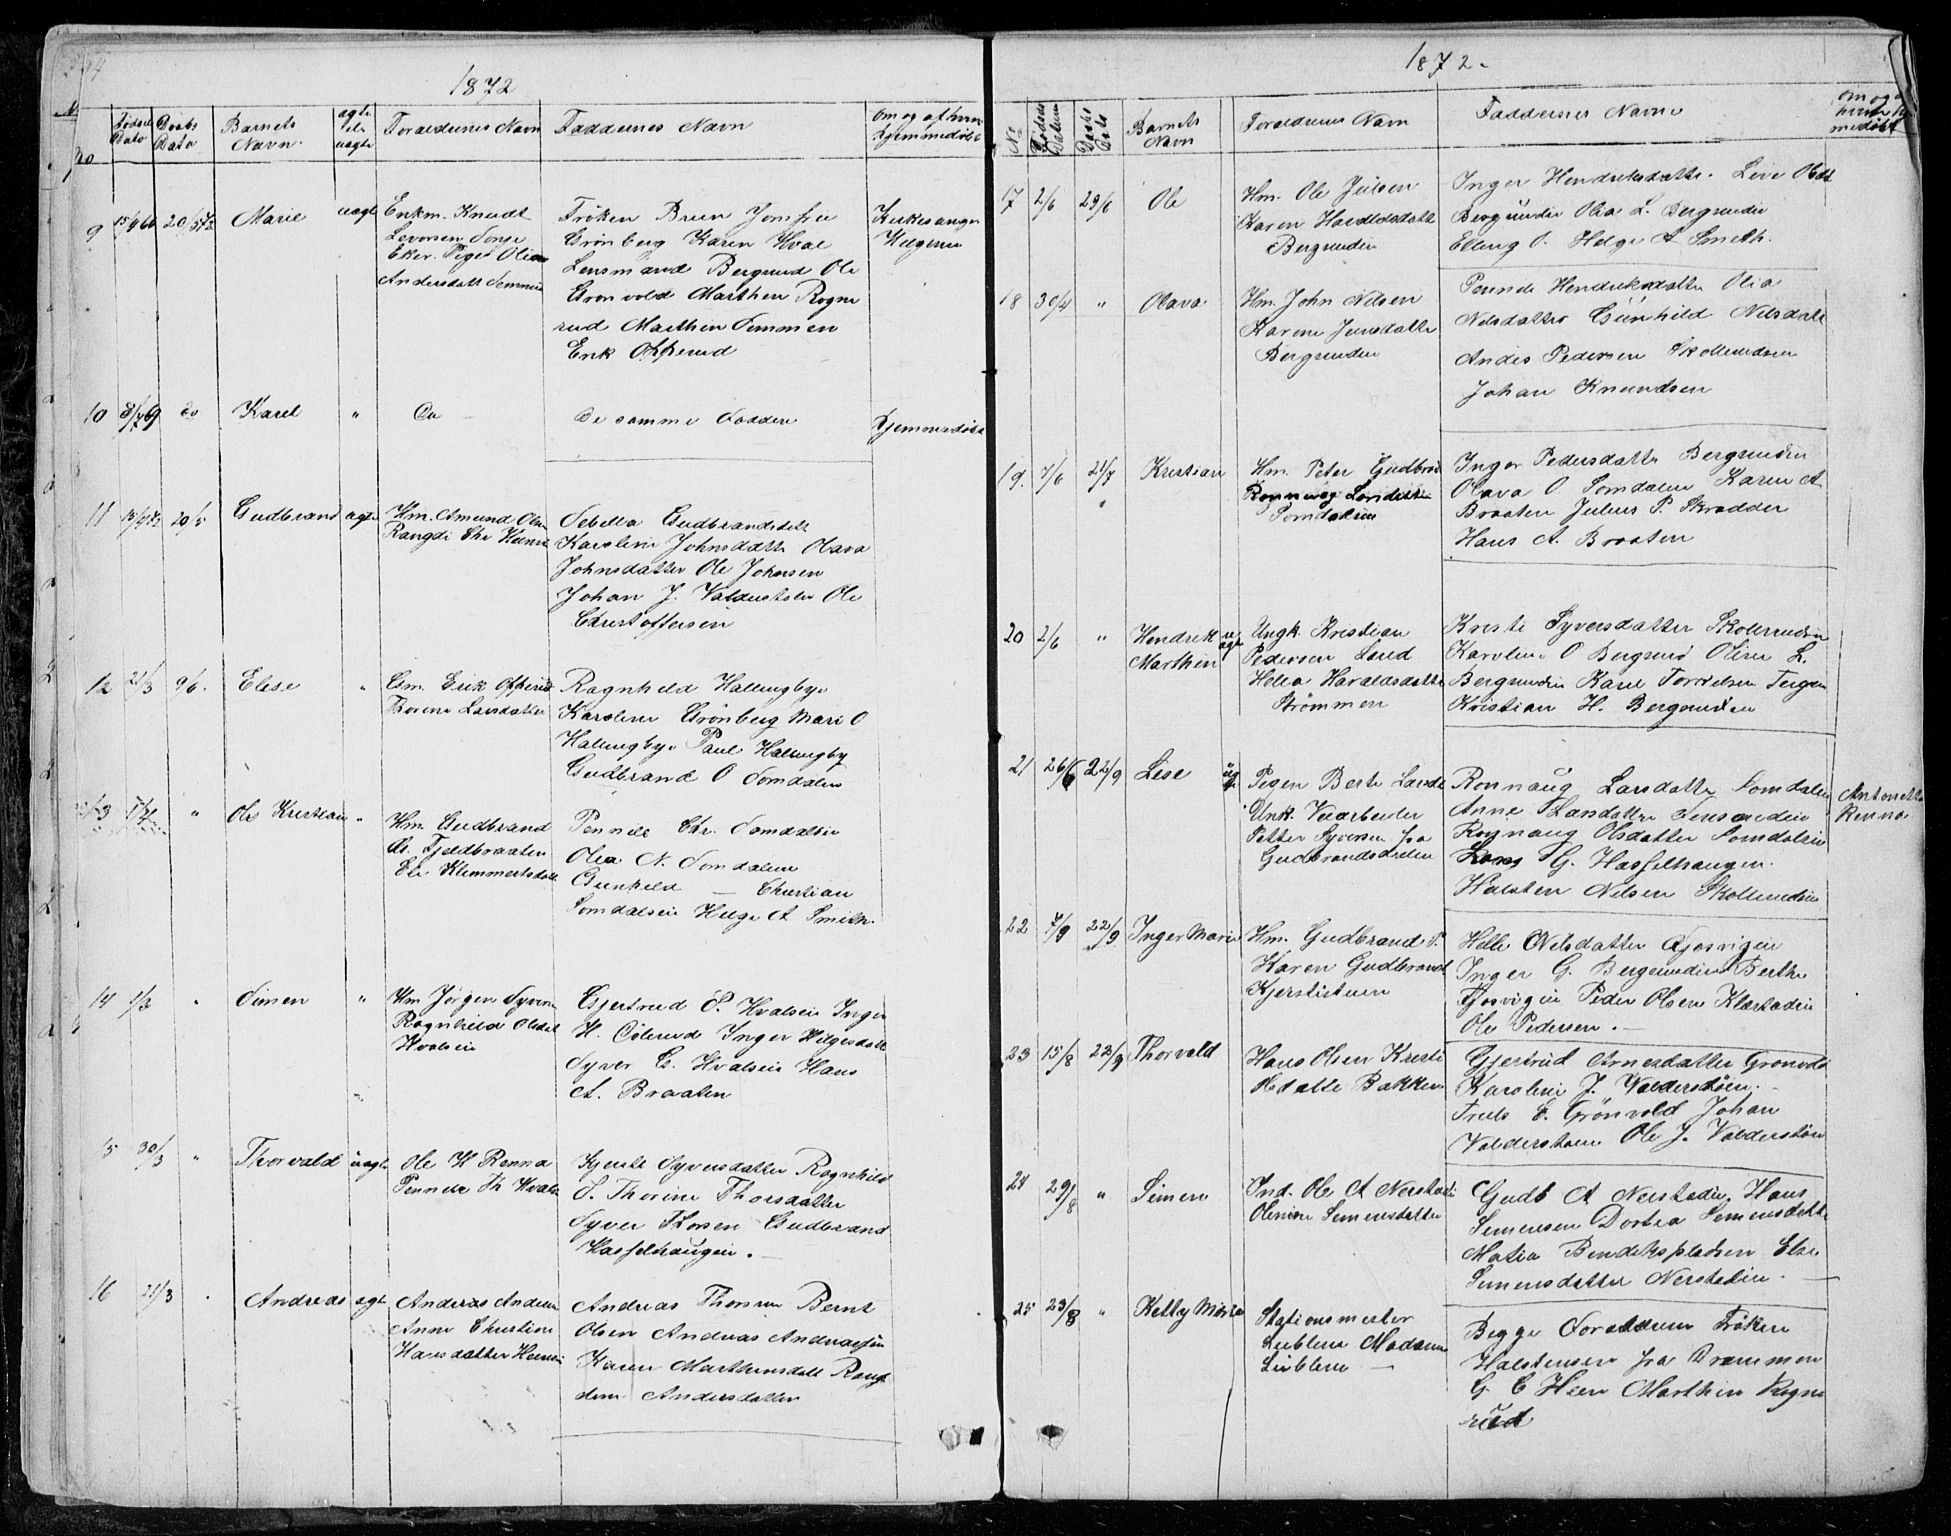 1872
No
Fødsel Dato
Daabs Dato
Barnets Navn.
ægte els uægte
Foraeldrenes Navn
Faddernes Navn
Om og af hvem hjemmedøbt
9 15/9 66 20/5 72 Marie uagt
Enkm. Knudt
Levorsen
Eker. Pige Oline
Andersdatt Semmen
Frøken Brun Jomfru
Grønberg Karen Hval
Lensmand Bergsund Ole
Gronvold Marthin Rogne
rud Marthin Semmen
Erik Opperud
Kirkesanger
Helgesen
10 8/7 69 do Karel " Do
De samme Faddere
Hjemmedøbt
11 20/5 Gudbrand ægte
Hm. Amund Olsen
Rangdi Chr
Sebella Gudbrandsdatt
Karoline Johnsdatte Olava
Johnsdatter Ole Johnsen
Johan J. Valdersteen Ole
Christoffersen
12 21/3 9/6. Elese "
Gm. Erik Opperud
Thorine Larsdatter
Ragnhild Hallingbye
Karoline Grønberg Mari O
Hallingbye Paul Hallingby
Gudbrand O Somdalen
13 " Ole Kristian "
Hm. Gudbrand
Fjeldbraaten
Eli Klemmertsdatt
Pernile Chr. Somdalsei
Olia N. Somdalen
Gunhild — Christian
Somdalseie Helge A Smith.
14 1/3 " Simen "
Hm Jørgen Syvers
Ragnhild Olsdat
Hvalseie
Gjertrud S. Hvalseie Inger
H. Inger Helgesdatt
Syver G. Hvalseie Hans
A. Braaten
15 30/3 " Thorvald uagte
Ole H Renna
Pernile Th Hvals
Kjerste Syversdatter Ragnhild
S. Thorine Thorsdatter
Syver Thorsen Gudbrand
Hasselhaugen.
16 21/3 . Andreas egt
Andreas Andersen
Anne Christine
Hansdatter
Andreas Thorsen Bernt
Olsen Andreas Andreasen
Karen Marthinsdatt
Andersdatter
1872.
No
Fødsels Datum
Daabs Dato
Barnets Navn
Foraeldrenes Navn
Faddernes Navne
Om og af hvem hjemmedøbt
17 2/6 29/6 Ole
Hm. Ole Julsen
Karen Haraldsdatte
Bergsundei
Inger Hendriksdatte. Live Olsdt
Bergsundie Olia L. Bergsundie
Elling O. Helge A Smeth.
18 30/4 " Olava
Hm. John Nelsen
Karine Jensdatte
Bergsundei
Pernele Hendriksdatte Olia
Nelsdatter Gunhild Nelsdatt
Anders Pedersen Skollerudseie
Johan Knundsen
19. 7/6 21/7 " Kristian
Hm. Peter Gudbra
Ronnaug Larsdatte
Somdalseie
Inger Pedersdatte Bergsundei
Olava O Somdalen Karen A
Braaten Julius P. Skrædder
Hans A. Braaten
20 2/6 " Hendrik Marthin uegte
Ungk. Kristian
Pedersen
Helle Haraldsdatte
Strømmen
Kristi Syversdatter Skollerudeie
Karoline O Bergsund Oline L.
Bergsundeie Karel Torkelsen
Kristian H. Bergsundeie
21 26/6 22/9 Lise ueg
Pegen Berte Larsd
Unk. Veiarbeider
Petter Syversen fra
Gudbrandsdalen
Ronnaug Larsdatte Somdalseie
Anne Larsdatter
Ronnaug Olsdatter Somdalseie
Lars G. Hasselhaugen.
Halsten Nelsen Skollerudeie
Antonette
Renna
22 7/9 22/9 Inger Marie
Hm. Gudbrand P.
Karen Gudbrand
Kjerstistuen
Helle Nelsdatter Gjosvigen
Inger G. Bergsundei Berthe
Gjosvigeie Peder Olsen Klækstadeie
Ole Pedersen. —
23 15/8 22/9 Thorvald
Hans Olsen Kristi
Hsdatte Bakken
Gjertrud Arnesdatter Gronvold
Karoline J. Valderstøen. —
Truls E. Grönvold Johan
Valderstøen Ole J. Valderstøen
24 29/8 " Simen
Ind. Ole A Nerstad
Olenine Semensdatter
Gudb A Nerstadeie. Hans
Semensen Dortea Semensdatte
Matia Bendikspladsen Else
Semensdatter Nerstadeie. —
25 23/8 " Ketty Marie
Stationsmester
Lieblein Madame
Lieblein —
Begge Foraeldrene Frøken
Halstensen fra Drammen
G. C Heen Marthin Rogne
rud